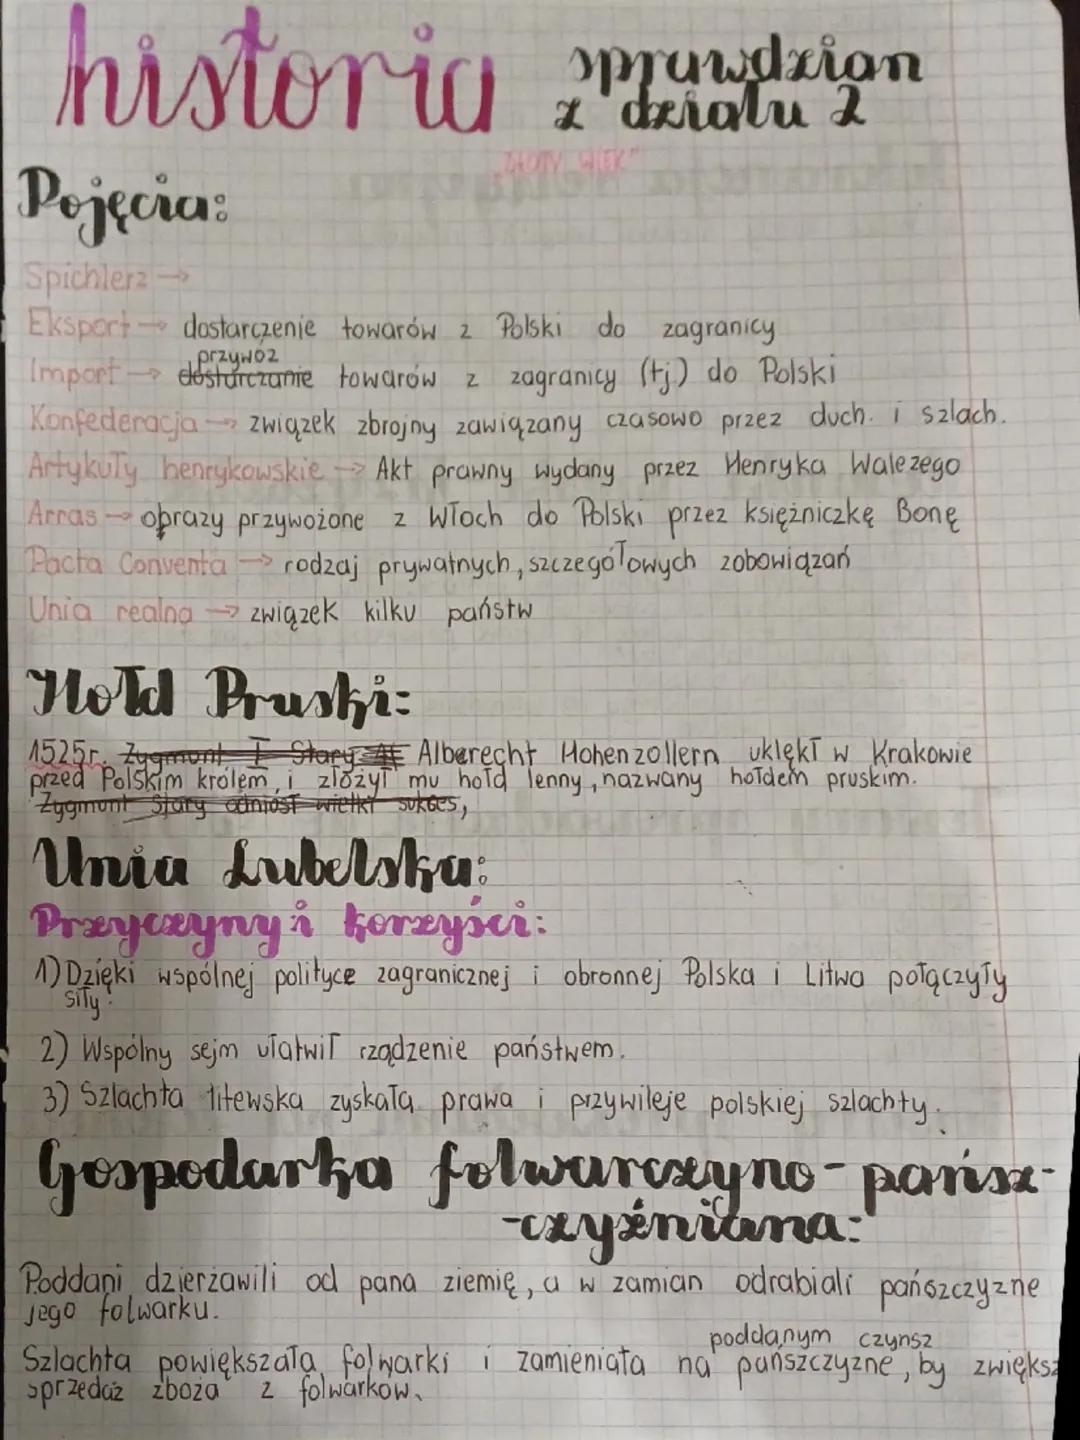 historia sprawdzian
z działu 2
"ZŁOTY WIEK"
Pojęcia:
Spichlerz →
Eksport → dostarczenie towarów z Polski do zagranicy
przywóz
Import → dostarczanie towarów z zagranicy (tj.) do Polski
Konfederacja → związek zbrojny zawiązany czasowo przez duch. i szlach.
Artykuły henrykowskie → Akt prawny wydany przez Henryka Walezego
Arras → obrazy przywożone z Włoch do Polski przez księżniczkę Bonę
Pacta Conventa → rodzaj prywatnych, szczegółowych zobowiązań
Unia realna → związek kilku państw
Hołd Pruski:
1525r. Zygmunt I Stary Alberecht Hohenzollern uklękł w Krakowie
przed Polskim królem, i złożył mu hołd lenny, nazwany hołdem pruskim.
Zygmunt Stary odniósł wielki sukces,
Unia Lubelska:
Przyczyny i korzyści:
1) Dzięki wspólnej polityce zagranicznej i obronnej Polska i Litwa połączyły
siły.
2) Wspólny sejm ułatwił rządzenie państwem.
3) Szlachta litewska zyskała prawa i przywileje polskiej szlachty.
Gospodarka folwarczyno-pańsz-
-czyźniana:
Poddani dzierżawili od pana ziemię, a w zamian odrabiali pańszczyzne
jego folwarku.
poddanym czynsz
Szlachta powiększała folwarki i zamieniała na pańszczyzne, by zwiększ
sprzedaż zboża z folwarkow.